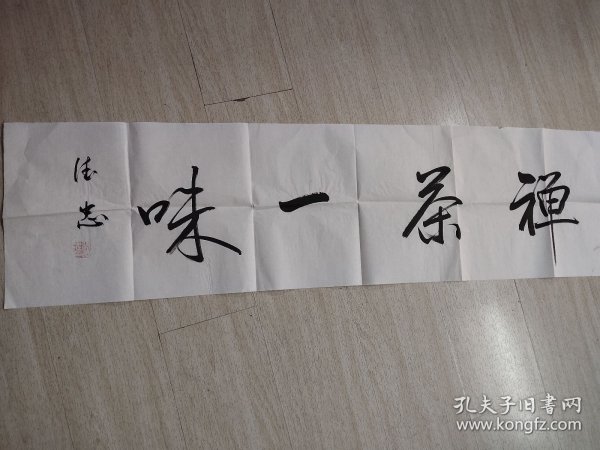 禅茶一味
德志
孔夫子旧書网
www.kongfz.com